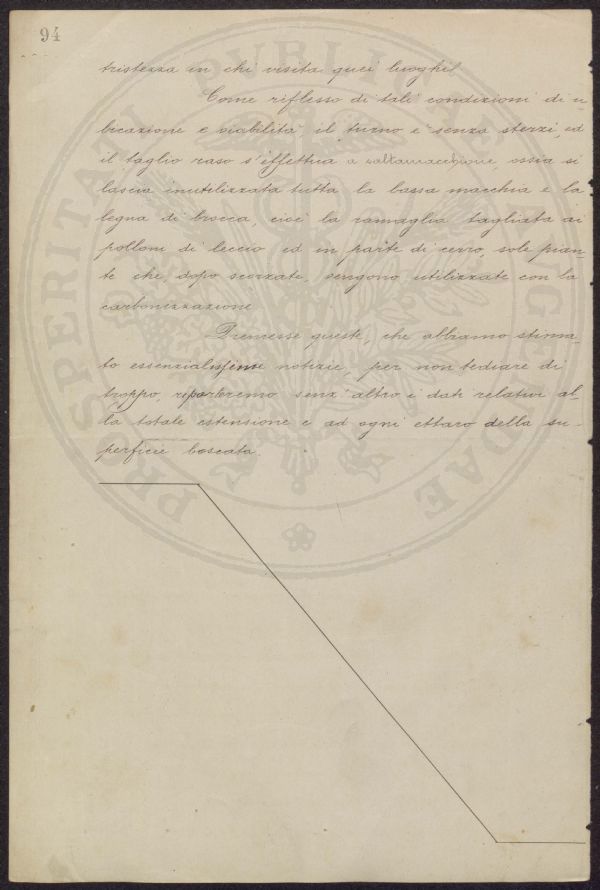 94
tristezza in chi visita quei luoghi!
Come riflesso di tali condizioni di u
bicazione e viabilità, il turno è senza sterzi, ed
il taglio raso s'effettua a saltamacchione, ossia si
lascia inutilizzata tutta la bassa macchia e la
legna di brocca, cioè la ramaglia tagliata ai
polloni di leccio ed in parte di cerro, sole pian-
te che, dopo scorzate, vengono utilizzate con la
carbonizzazione
Premesse queste, che abbiamo stima-
to essenzialissime notizie, per non tediare di
troppo, riporteremo senz'altro i dati relativi al-
la totale estensione e ad ogni ettaro della su-
perficie boscata.
PROSPERITATI PUBLICAE AUGENDAE